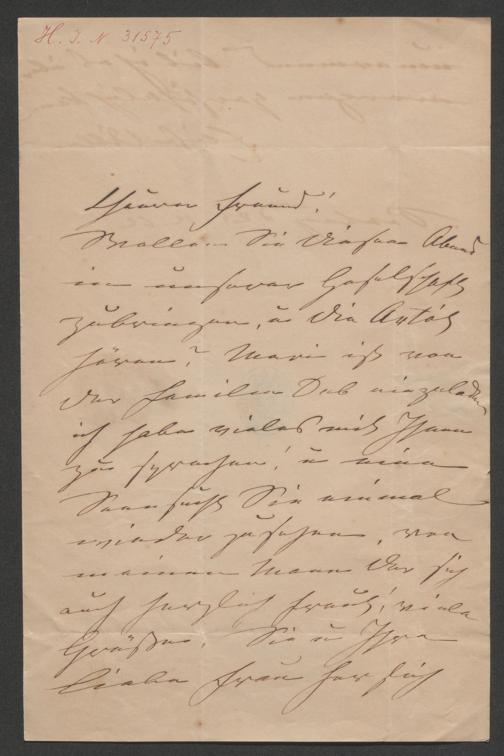 H. I. N. 31575
Theurer Freund!
Wollen Sie diesen Abend
in unserer Gesellschaft
zubringen, u die
hören? Marie ist von
der Familie einzuladen
ich habe vieles mit Ihnen
zu sprechen! u eine
Sehnsucht Sie einmal
wieder zu sehen, von
meinem Mann der sich
auch herzlich freut! viele
Grüße. Sie u Ihre
liebe Frau herzlich